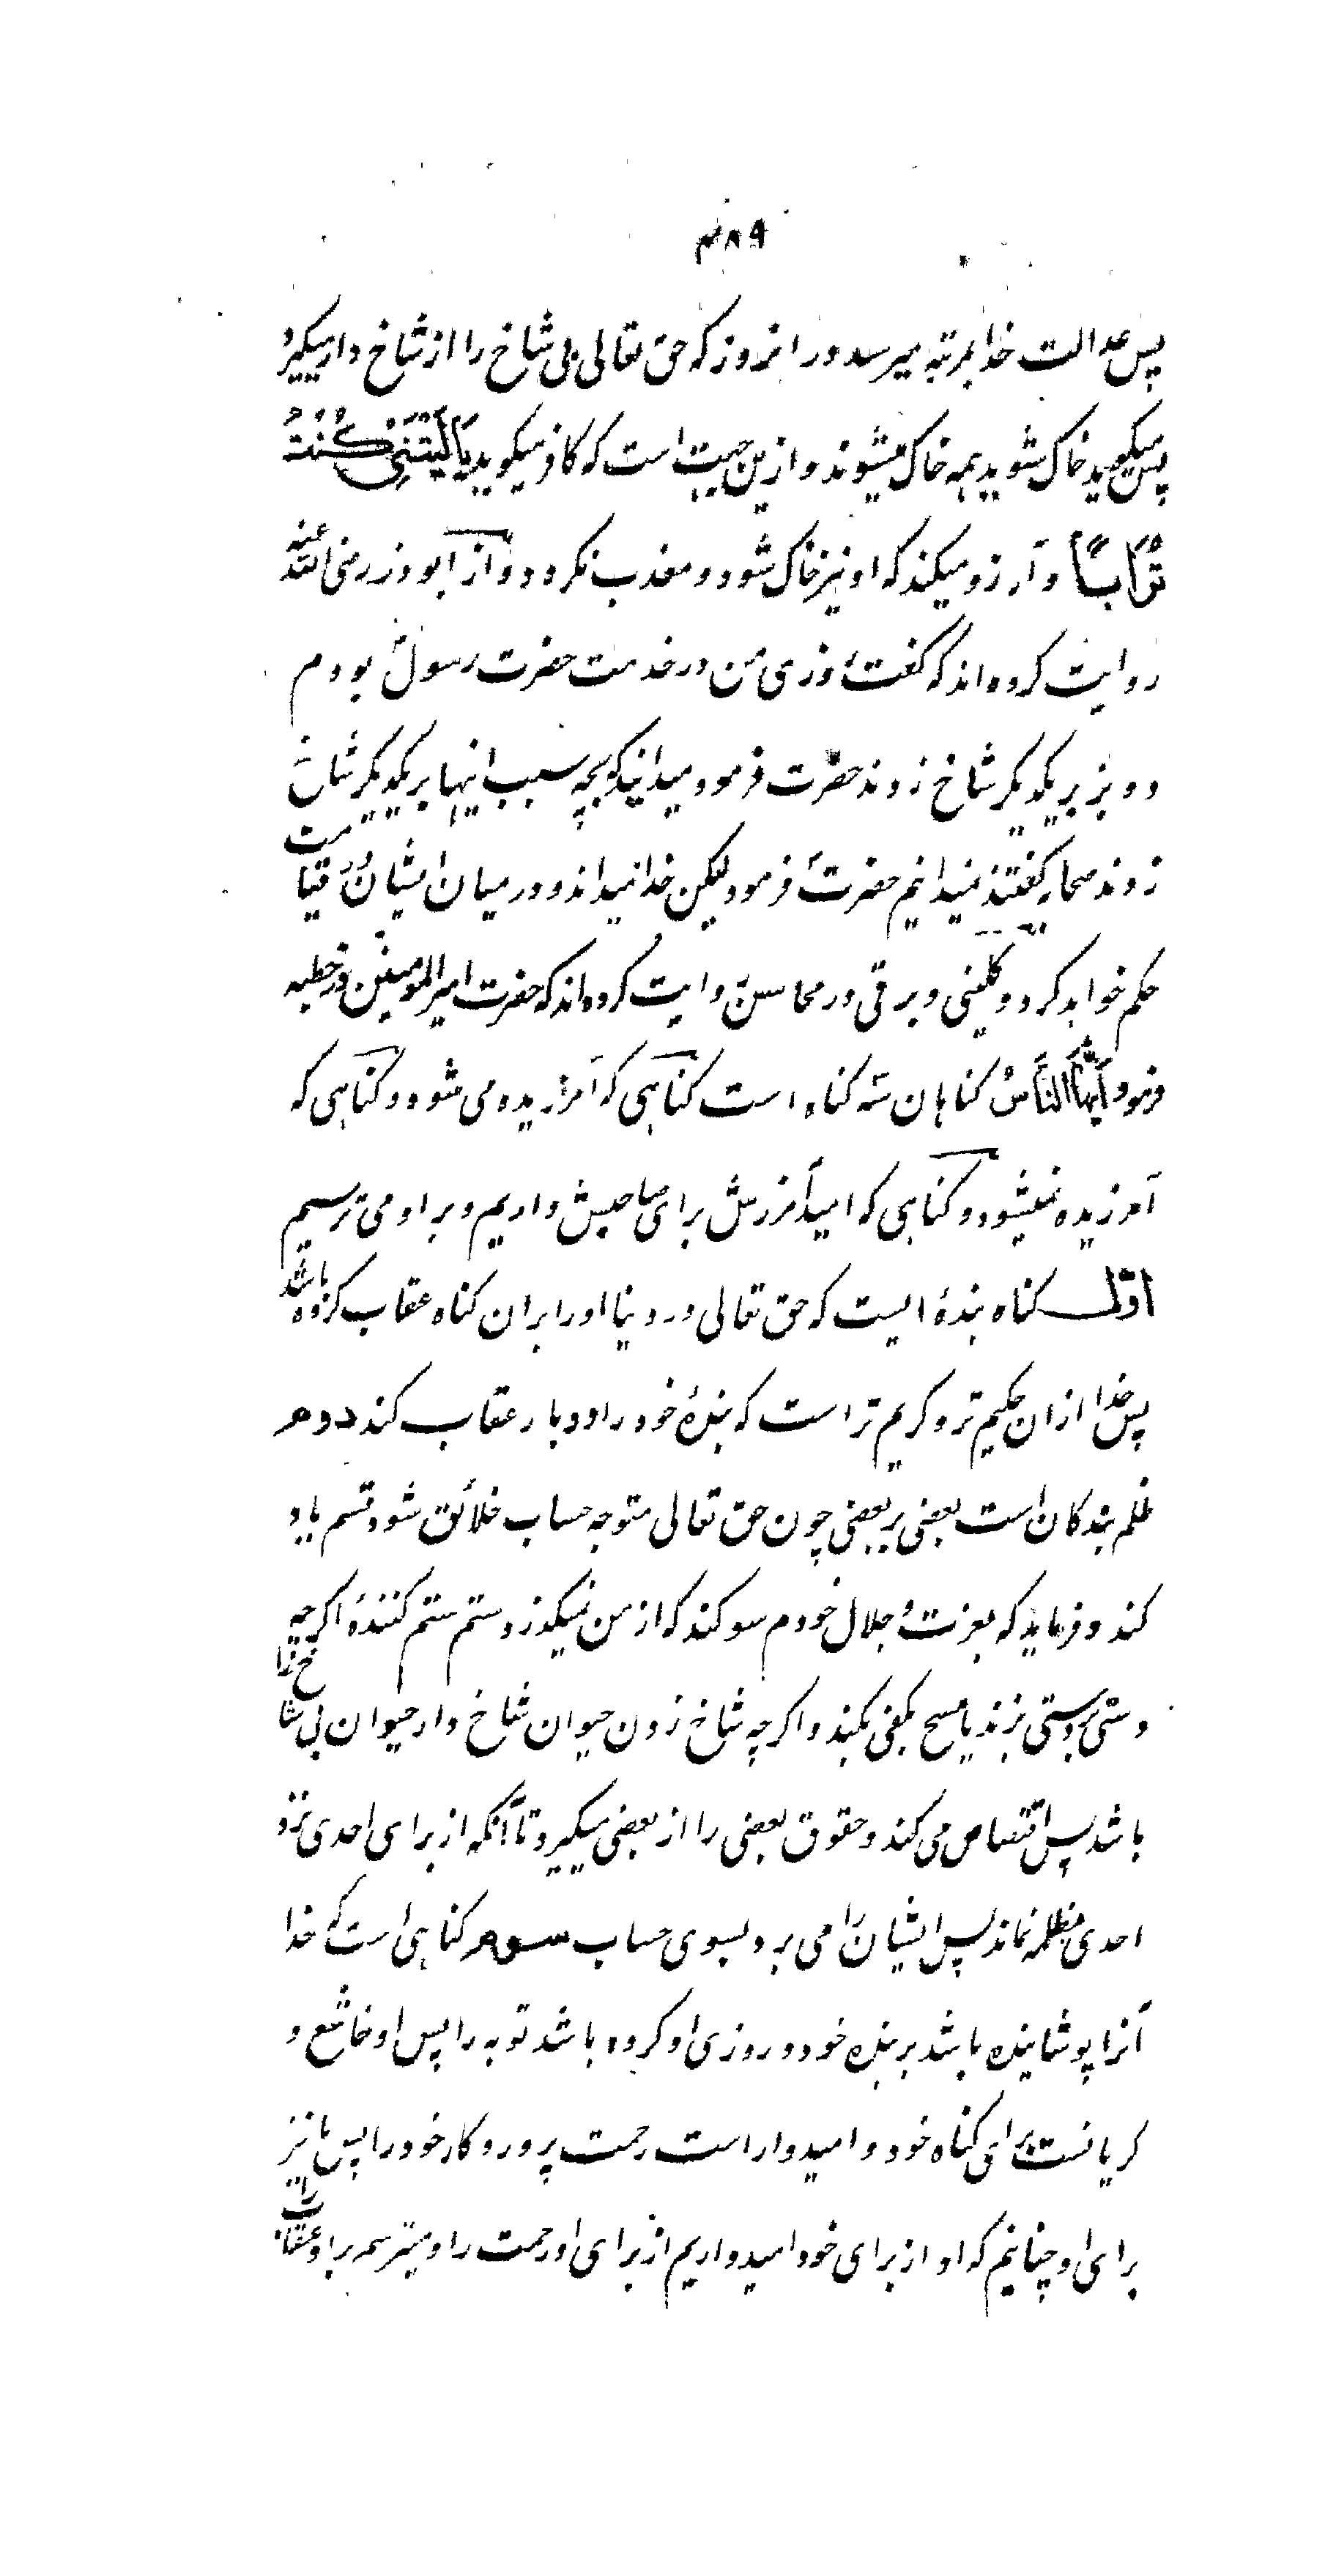 ۴۸۹
پس عدالت خدا بمرتبه میرسد در انروز که حق تعالی بی شاخ را از شاخ دار میگیرد
پس میگوید خاک شوید همه خاک میشوند و ازین جهت است که کافر میگوید یَا لَیْتَنِی کُنْتُ
تُرَاباً و آرزو میکند که او نیز خاک شود و معذب نکردد و از ابوذر رضی الله عنه
روایت کرده اند که کفت روزی من در خدمت حضرت رسول بودم
دو بز بر یکدیکر شاخ زدند حضرت فرمود میدانید که بچه سبب اینها بر یکدیکر شاخ
زدند صحابه کفتند نمیدانیم حضرت فرمود لیکن خدا میداند و در میان ایشان روز قیامت
حکم خواهد کرد و کلینی و برقی در محاسن روایت کرده اند که حضرت امیر المومنین در خطبه
فرمود اَیُّهَا النَّاسُ کناهان سه کناه است کناهی که آمرزیده می شود و کناهی که
آمرزیده نمیشود و کناهی که امید آمرزش برای صاحبش داریم و بر او می ترسیم
اوّل کناه بندهٔ ایست که حق تعالی در دنیا او را بران کناه عقاب کرده باشد
پس خدا ازان حکیم تر و کریم تر است که بندهٔ خود را دو بار عقاب کند دوم
ظلم بندکان است بعضی بر بعضی چون حق تعالی متوجه حساب خلائق شود قسم یاد
کند و فرماید که بعزت و جلال خودم سوکند که از من نمیکذرد ستم ستم کنندهٔ اکرچه
دستی بر دستی بزند یا مسح بکفی بکند و اکرچه شاخ زدن حیوان شاخ دار حیوان بی شاخ را
باشد پس اقتصاص می کند و حقوق بعضی را از بعضی میگیرد تا آنکه از برای احدی نزد
احدی مظلمه نماند پس ایشان را می برد بسوی حساب سوم کناهی است که خدا
آنرا پوشانیده باشد بر بنده خود و روزی او کرده باشد توبه را پس او خاشع و
کریانست برای کناه خود و امیدوار است رحمت پروردکار خود را پس ما نیز
برای او چنانیم که او از برای خود امیدواریم از برای او رحمت را و میترسیم بر او عقاب را